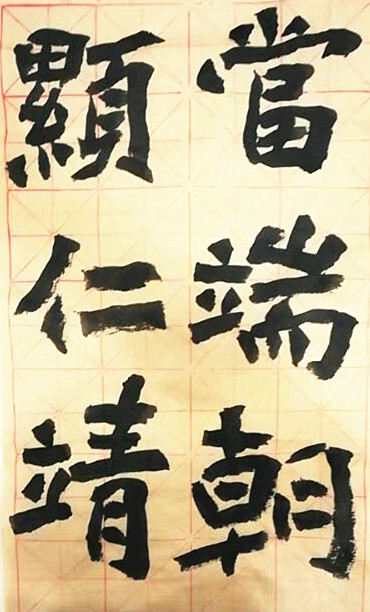 當端朝
顯仁靖